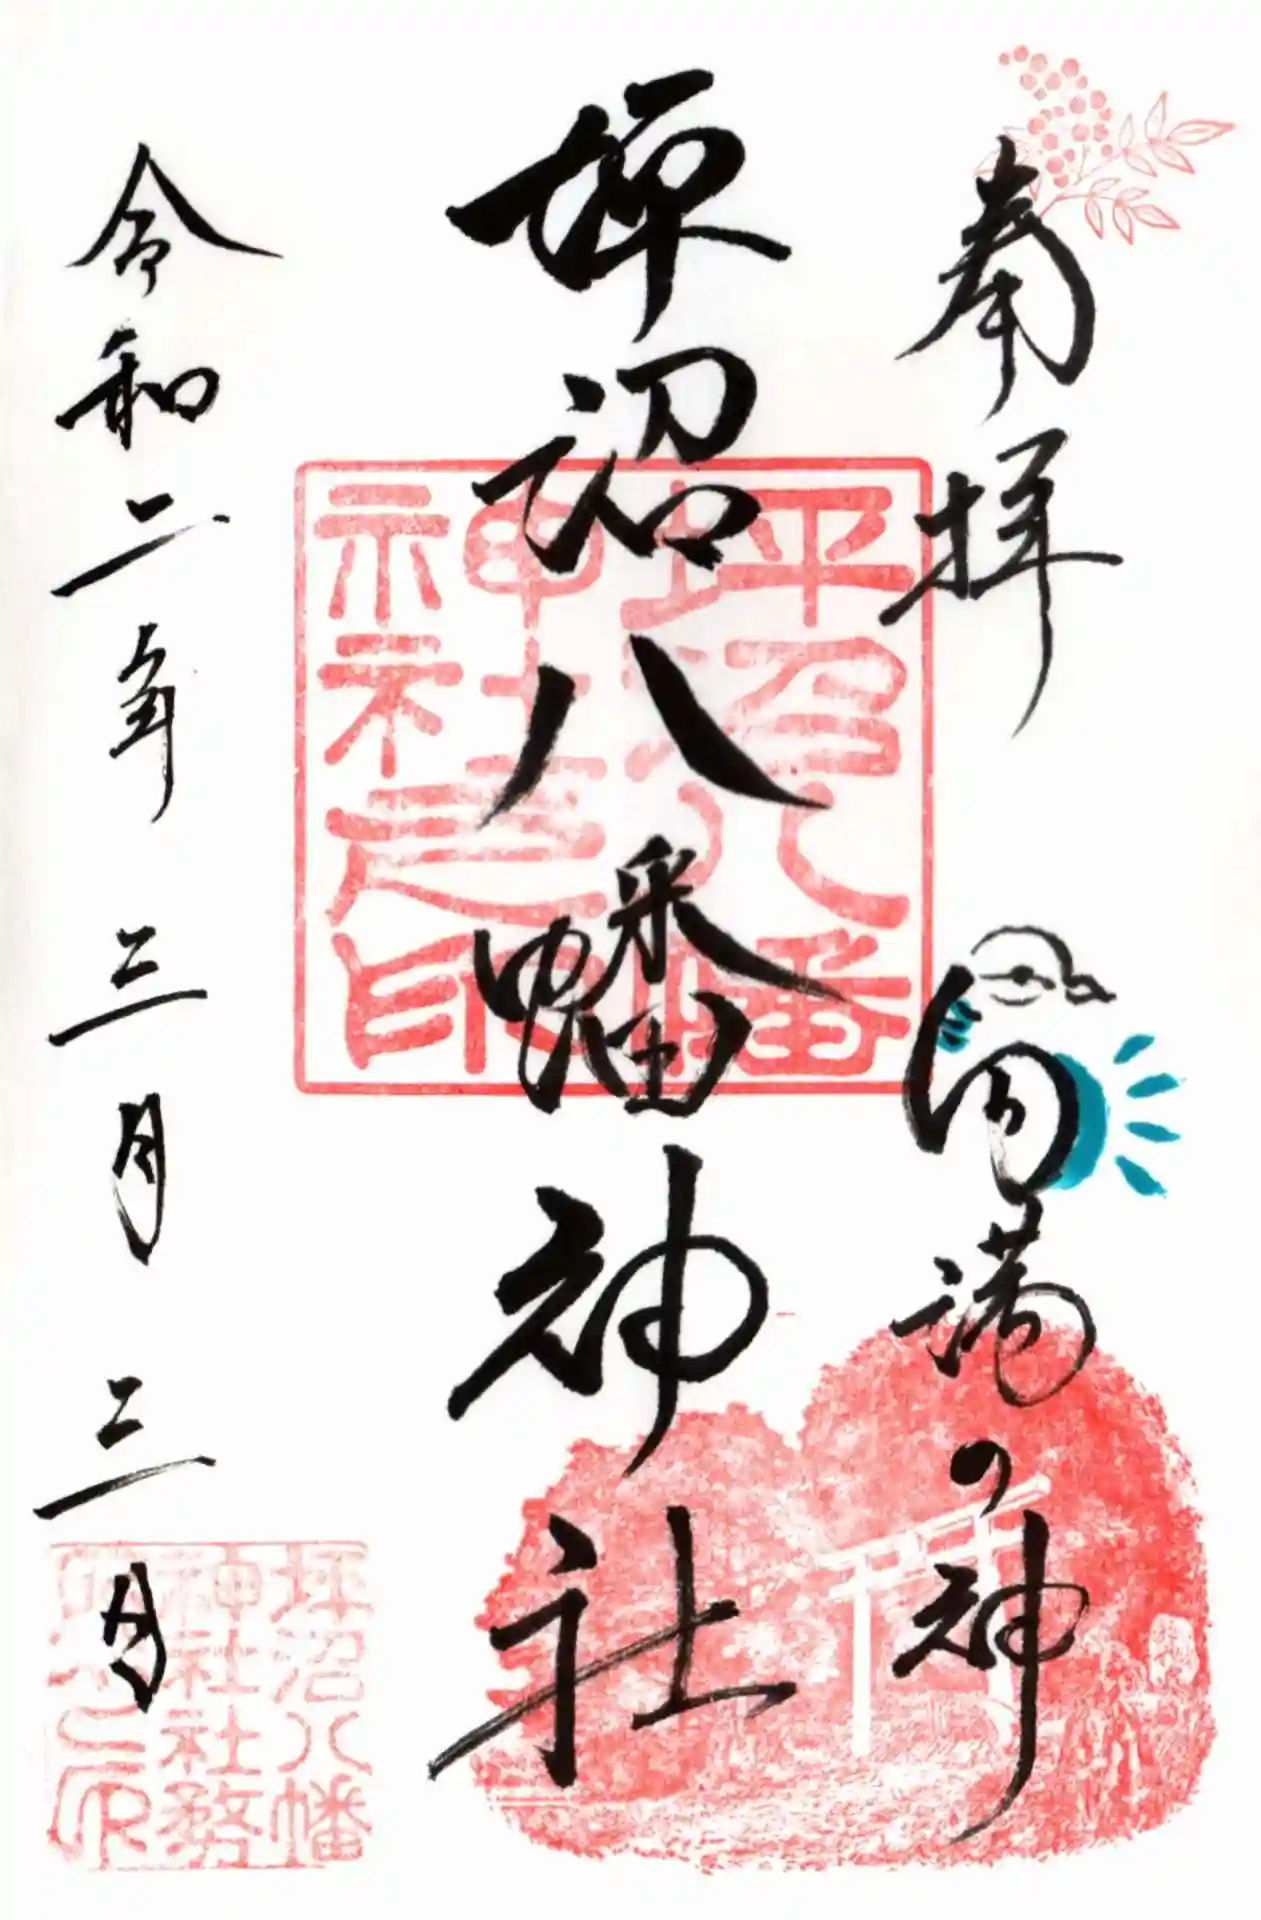 奉拝
円満の神
坪沼八幡神社
令和二年三月三日
坪沼八幡
神社之印
坪沼八幡
神社社務
所之印